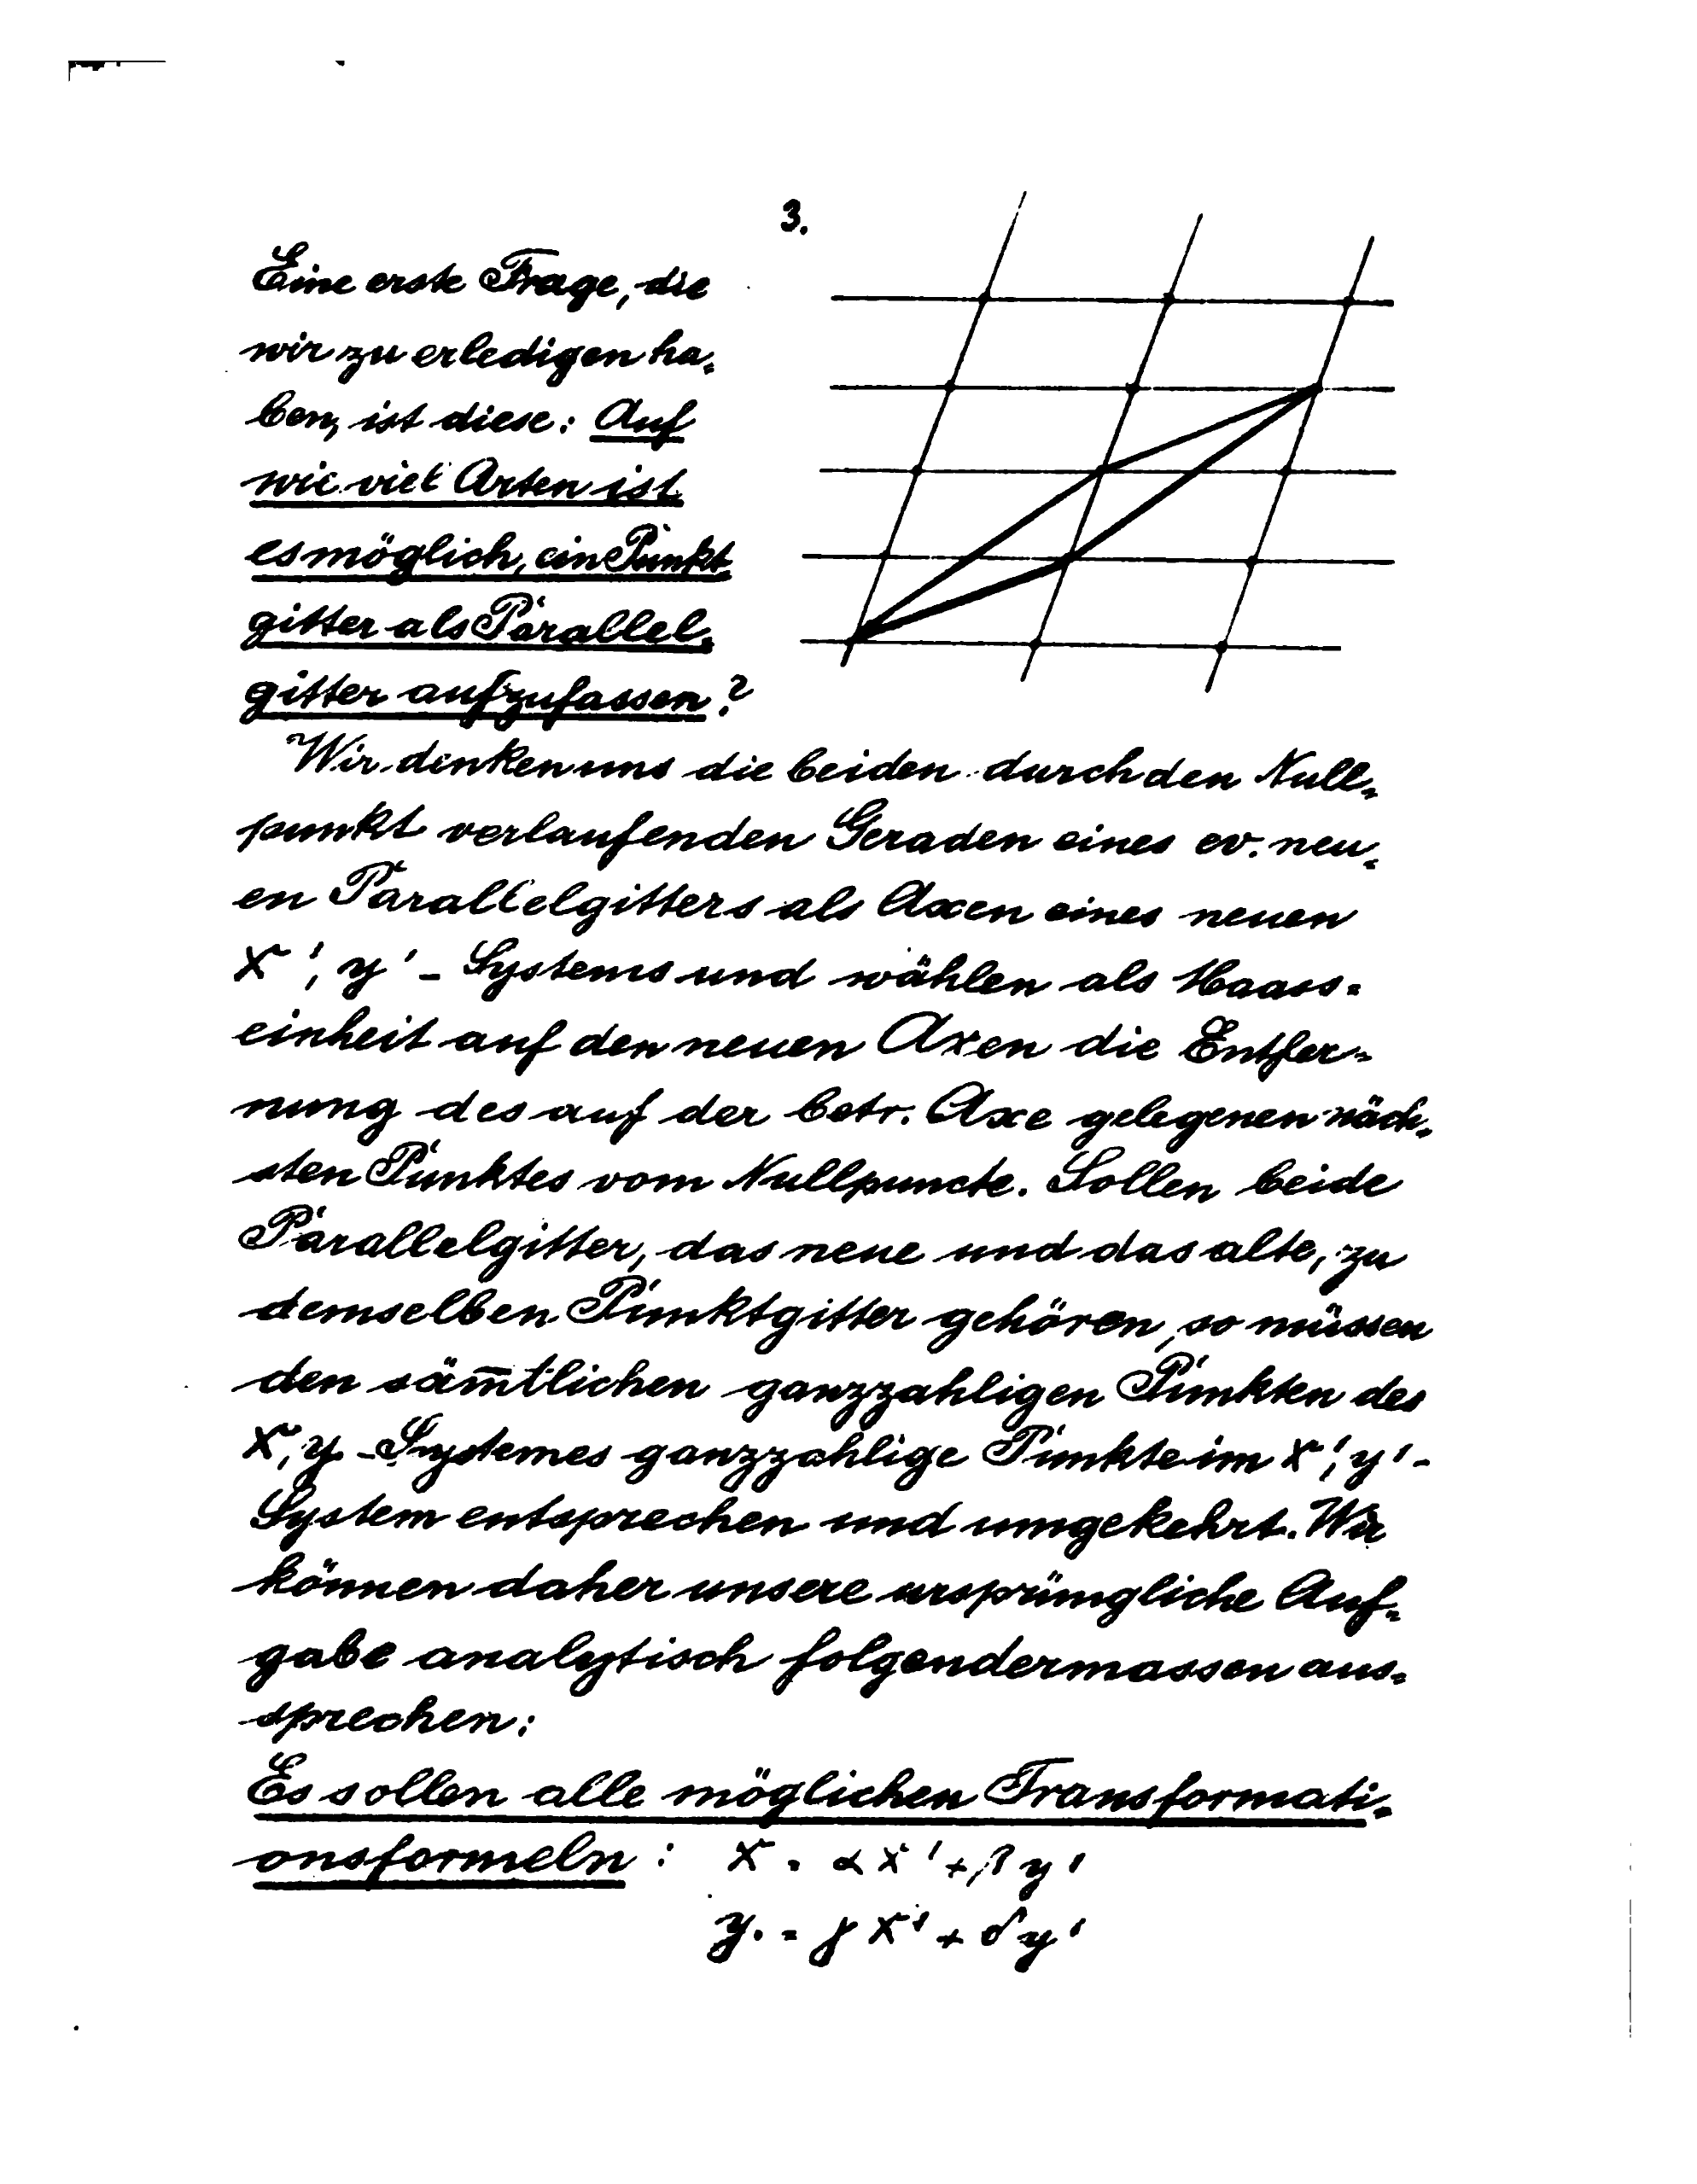 3.
Eine erste Frage, die
wir zu erledigen ha-
ben, ist diese: Auf
wie viel Arten ist
es möglich, ein Punkt-
gitter als Parallel-
gitter aufzufassen?
Wir denken uns die beiden durch den Null-
punkt verlaufenden Geraden eines ev. neu-
en Parallelgitters als Axen eines neuen
x', y' - Systems und wählen als Maass-
einheit auf den neuen Axen die Entfer-
nung des auf der betr. Axe gelegenen näch-
sten Punktes vom Nullpuncte. Sollen beide
Parallelgitter, das neue und das alte, zu
demselben Punktgitter gehören, so müssen
den säm̅tlichen ganzzahligen Punkten des
x, y - Systemes ganzzahlige Punkte im x', y' -
System entsprechen und umgekehrt. Wir
können daher unsere ursprüngliche Auf-
gabe analytisch folgendermassen aus-
sprechen:
Es sollen alle möglichen Transformati-
onsformeln: x = αx' + βy'
y = γx' + δy'